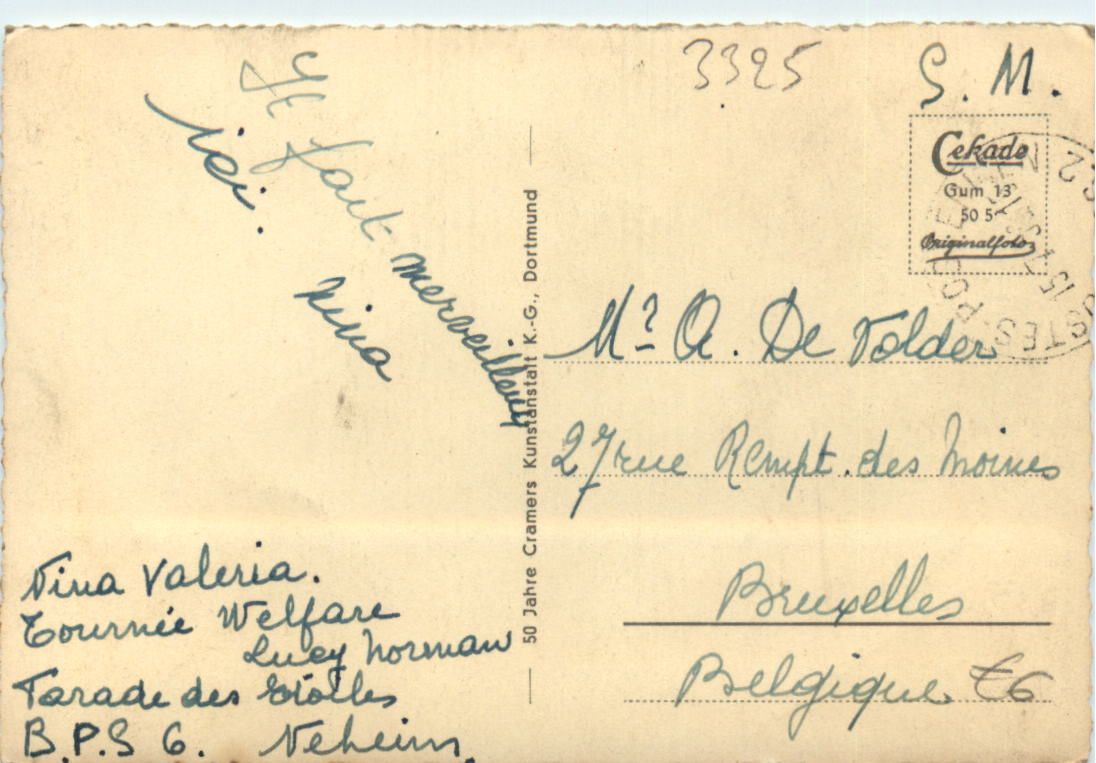 3325
S. M.
Cekade
Gum 13
50 5
Originalfoto
Il fait merveilleux
ici.
Nina
50 Jahre Cramers Kunstanstalt K.-G., Dortmund
Mr A. De Volder
27 rue Rempt. des Moines
Bruxelles
Belgique €6
Nina Valeria.
Tournée Welfare
Lucy Norman
Parade des Etoiles
B.P.S 6. Neheim.